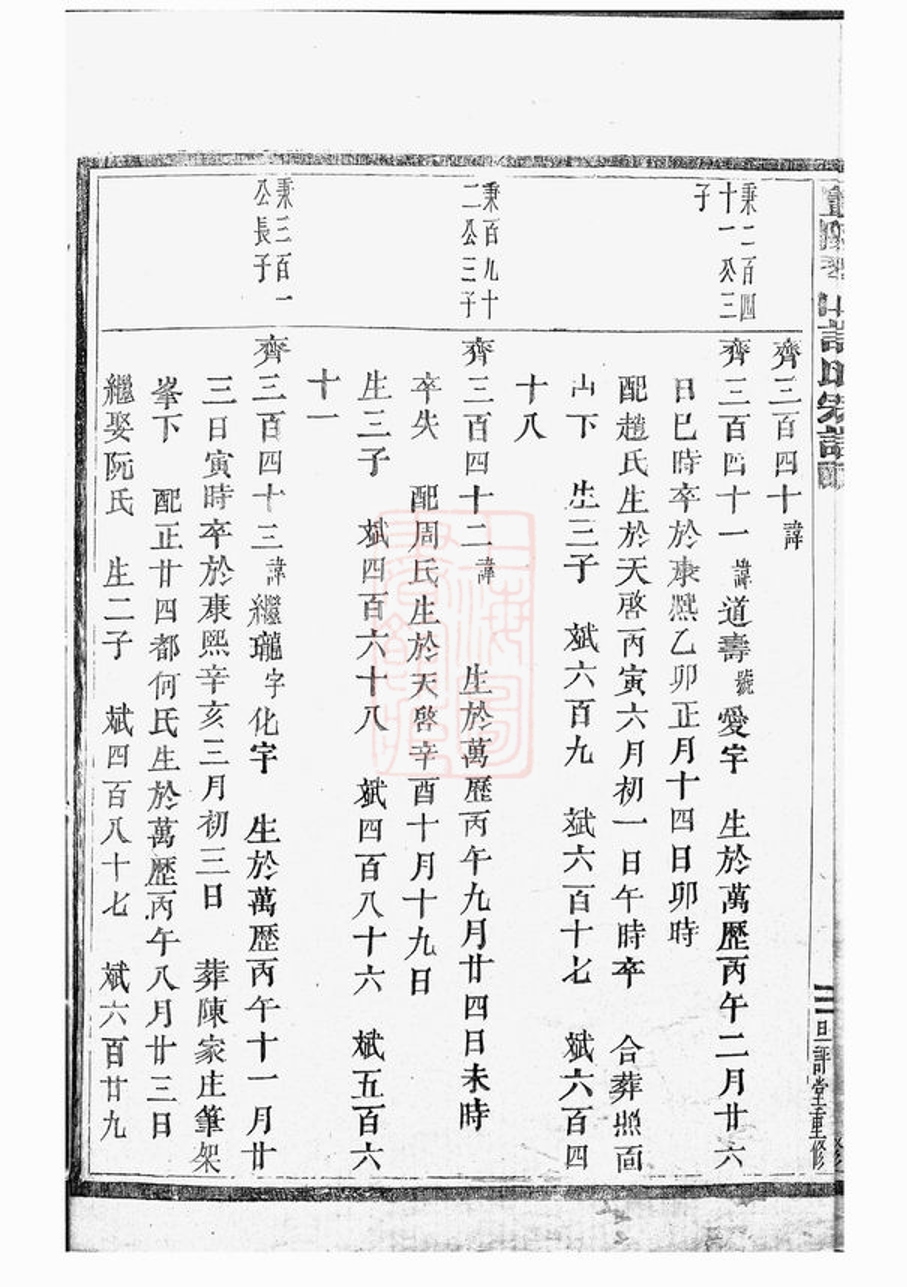 齊三百四十諱
秉二百四
十一公三
子
齊三百四十一諱道壽號愛宇 生於萬歷丙午二月廿六
日巳時卒於康熙乙卯正月十四日卯時
配趙氏生於天啓丙寅六月初一日午時卒 合葬照面
山下 生三子 斌六百九 斌六百十七 斌六百四
十八
秉百九十
二公三子
齊三百四十二諱 生於萬歷丙午九月廿四日未時
卒失 配周氏生於天啓辛酉十月十九日
生三子 斌四百六十八 斌四百八十六 斌五百六
十一
秉三百一
公長子
齊三百四十三諱繼瓏字化宇 生於萬歷丙午十一月廿
三日寅時卒於康熙辛亥三月初三日 葬陳家庄筆架
峯下 配正廿四都何氏生於萬歷丙午八月廿三日
繼娶阮氏 生二子 斌四百八十七 斌六百廿九
旦評堂重修
上海圖
書館藏